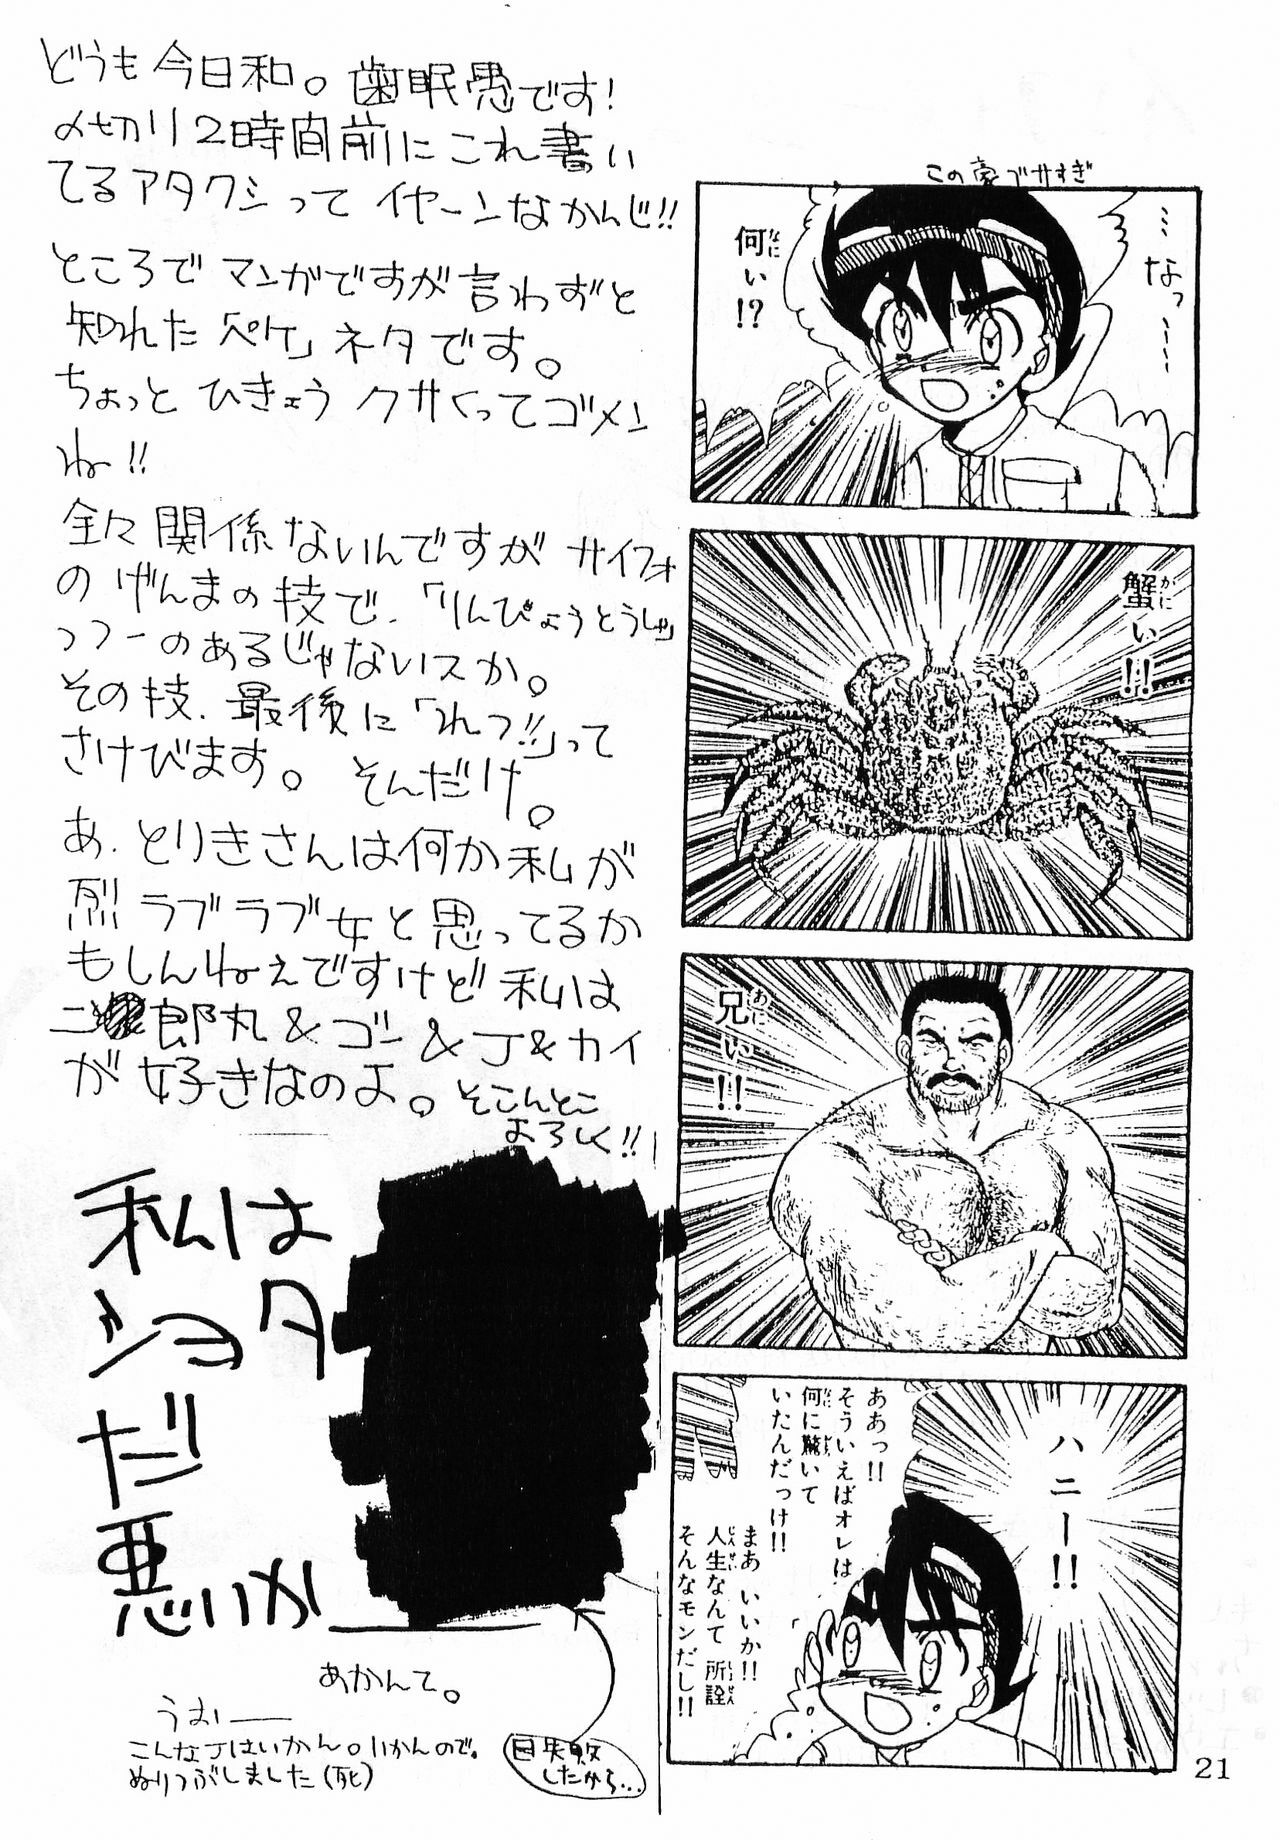 どうも今日和。歯眠愚です!
〆切り2時間前にこれ書い
てるアタクシって イヤーンなかんじ!!
ところで マンガですが言わずと
知れた「ペケ」ネタです。
ちょっと ひきょう クサくってゴメン
ね!!
全々関係ないんですが サイフォ
の げんまの技で、「りんぴょうとうしゃ」
っつーのあるじゃないスか。
その技、最後に「れつ!!」って
さけびます。 そんだけ。
あ、とりきさんは何か私が
烈ラブラブ女と思ってるか
もしんねぇですけど私は
二郎丸&ゴン&J&カイ
が好きなのよ。そこんとこ
よろしく!!
私は
ショタ
だ
悪いか
あかんて。
うおー
こんなJはいかん。いかんので。
ぬりつぶしました(死)
目失敗
したから…
この豪ブサすぎ
…なっ——
何ぃ!?
蟹ぃ!!
兄ぃ!!
ハニー!!
ああっ!!
そういえばオレは
何に驚いて
いたんだっけ!!
まあ いいか!!
人生なんて 所詮
そんなモンだし!!
21